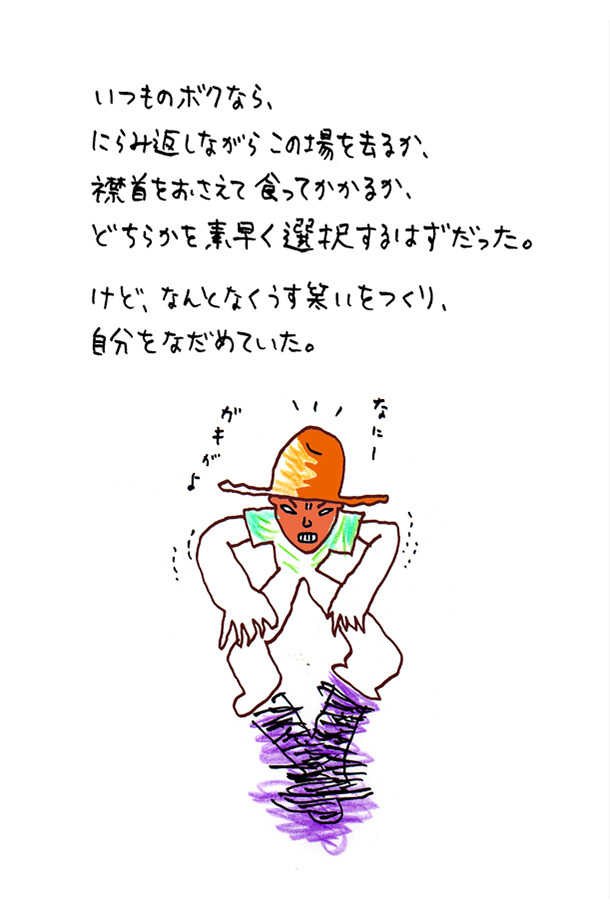 いつものボクなら、
にらみ返しながらこの場を去るか、
襟首をおさえて食ってかかるか、
どちらかを素早く選択するはずだった。
けど、なんとなくうす笑いをつくり、
自分をなだめていた。
なにー
ガキがよ